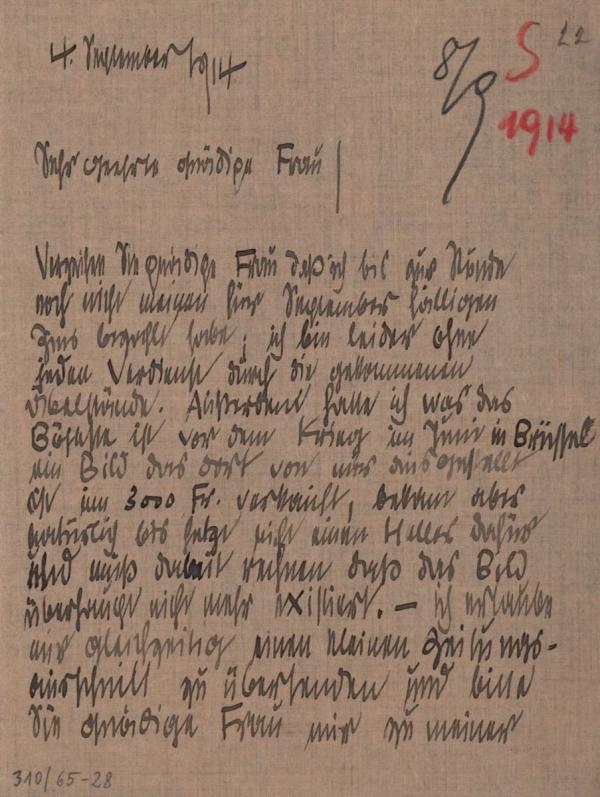 4. September 1914
8/9 S 22
1914
Sehr geehrte gnädige Frau!
Verzeihen Sie gnädige Frau daß ich bis zur Stunde
noch nicht meinen für September fälligen
Zins bezahlt habe; ich bin leider ohne
jeden Verdienst durch die gekommenen
Übelstände. Außerdem hatte ich was das
Böseste ist vor dem Krieg im Juni in Brüssel
ein Bild das dort von mir ausgestellt
ist um 3000 Fr. verkauft, bekam aber
natürlich bis jetzt nicht einen Heller dafür
und muß damit rechnen daß das Bild
überhaupt nicht mehr existiert. – ich erlaube
mir gleichzeitig einen kleinen Zeitungs-
ausschnitt zu übersenden und bitte
Sie gnädige Frau mir zu meiner
310/65-28